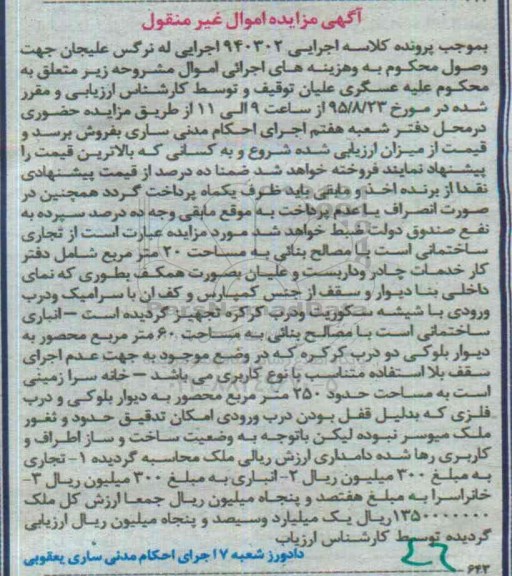 آگهی مزایده اموال غیر منقول
بموجب پرونده کلاسه اجرایی ۹۴۰۳۰۲ اجرایی له نرگس علیجان جهت
وصول محکوم به وهزینه های اجرائی اموال مشروحه زیر متعلق به
محکوم علیه عسگری علیان توقیف و توسط کارشناس ارزیابی و مقرر
شده در مورخ ۹۵/۸/۲۳ از ساعت ۹ الی ۱۱ از طریق مزایده حضوری
درمحل دفتر شعبه هفتم اجرای احکام مدنی ساری بفروش برسد و
قیمت از میزان ارزیابی شده شروع و به کسانی که بالاترین قیمت را
پیشنهاد نمایند فروخته خواهد شد ضمنا ده درصد از قیمت پیشنهادی
نقدا از برنده اخذ و مابقی باید ظرف یکماه پرداخت گردد همچنین در
صورت انصراف یا عدم پرداخت به موقع مابقی وجه ده درصد سپرده به
نفع صندوق دولت ضبط خواهد شد مورد مزایده عبارت است از تجاری
ساختمانی است با مصالح بنائی به مساحت ۲۰ متر مربع شامل دفتر
کار خدمات چادر وداربست و علیان بصورت همکف بطوری که نمای
داخلی بنا دیوار و سقف از جنس کمپاس و کف ان با سرامیک ودرب
ورودی با شیشه سکوریت ودرب کرکره تجهیز گردیده است – انباری
ساختمانی است با مصالح بنائی به مساحت ۶۰ متر مربع محصور به
دیوار بلوکی دو درب کرکره که در وضع موجود به جهت عدم اجرای
سقف بلا استفاده متناسب با نوع کاربری می باشد – خانه سرا زمینی
است به مساحت حدود ۲۵۰ متر مربع محصور به دیوار بلوکی و درب
فلزی که بدلیل قفل بودن درب ورودی امکان تدقیق حدود و ثغور
ملک میوسر نبوده لیکن باتوجه به وضعیت ساخت و ساز اطراف و
کاربری رها شده دامداری ارزش ریالی ملک محاسبه گردیده ۱- تجاری
به مبلغ ۳۰۰ میلیون ریال ۲- انباری به مبلغ ۳۰۰ میلیون ریال ۳-
خانراسرا به مبلغ هفتصد و پنجاه میلیون ریال جمعا ارزش کل ملک
۱۳۵۰۰۰۰۰۰۰ ریال یک میلیارد وسیصد و پنجاه میلیون ریال ارزیابی
گردیده توسط کارشناس ارزیاب
دادورز شعبه ۷ اجرای احکام مدنی ساری یعقوبی
۶۴۳